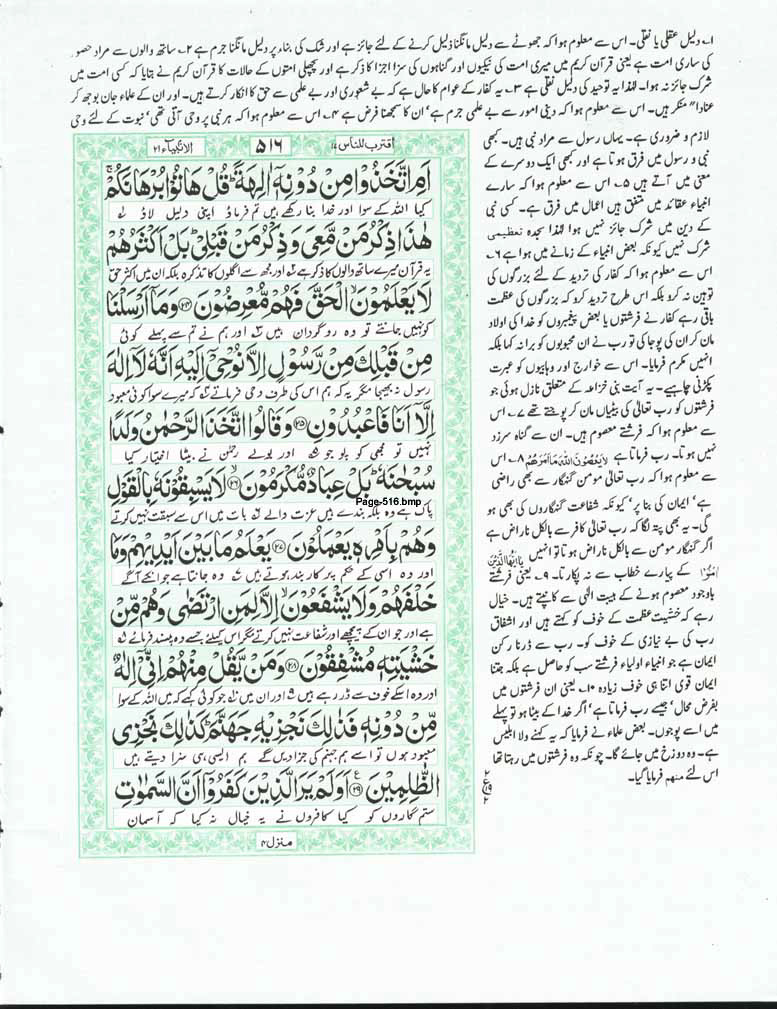 ۱۔ دلیل عقلی یا نقلی۔ اس سے معلوم ہوا کہ جھوٹے سے دلیل مانگنا ذلیل کرنے کے لئے جائز ہے اور شک کی بناء پر دلیل مانگنا جرم ہے ۲۔ ساتھ والوں سے مراد حضور
کی ساری امت ہے یعنی قرآن کریم میں میری امت کی نیکیوں اور گناہوں کی سزا جزا کا ذکر ہے اور پچھلی امتوں کے حالات کا قرآن کریم نے بتایا کہ کسی امت میں
شرک جائز نہ ہوا۔ لہٰذا یہ توحید کی دلیل نقلی ہے ۳۔ یہ کفار کے عوام کا حال ہے کہ بے شعوری اور بے علمی سے حق کا انکار کرتے ہیں۔ اور ان کے علماء جان بوجھ کر
عنادا" منکر ہیں۔ اس سے معلوم ہوا کہ دینی امور سے بے علمی جرم ہے' ان کا سمجھنا فرض ہے ۴۔ اس سے معلوم ہوا کہ ہر نبی پر وحی آتی تھی' نبوت کے لئے وحی
لازم و ضروری ہے۔ یہاں رسول سے مراد نبی ہیں۔ کبھی
نبی و رسول میں فرق ہوتا ہے اور کبھی ایک دوسرے کے
معنی میں آتے ہیں ۵۔ اس سے معلوم ہوا کہ سارے
انبیاء عقائد میں متفق ہیں اعمال میں فرق ہے۔ کسی نبی
کے دین میں شرک جائز نہیں ہوا لہٰذا سجدہ تعظیمی
شرک نہیں کیونکہ بعض انبیاء کے زمانے میں ہوا ہے ۶۔
اس سے معلوم ہوا کہ کفار کی تردید کے لئے بزرگوں کی
توہین نہ کرو بلکہ اس طرح تردید کرو کہ بزرگوں کی عظمت
باقی رہے کفار نے فرشتوں یا بعض پیغمبروں کو خدا کی اولاد
مان کر ان کی پوجا کی تو رب نے ان محبوبوں کو برا نہ کہا بلکہ
انہیں مکرم فرمایا۔ اس سے خوارج اور وہابیوں کو عبرت
پکڑنی چاہیے۔ یہ آیت بنی خزاعہ کے متعلق نازل ہوئی جو
فرشتوں کو رب تعالیٰ کی بیٹیاں مان کر پوجتے تھے ۷۔ اس
سے معلوم ہوا کہ فرشتے معصوم ہیں۔ ان سے گناہ سرزد
نہیں ہوتا۔ رب فرماتا ہے لَا یَعْصُوْنَ اللّٰہَ مَا اَمَرَھُمْ ۸۔ اس
سے معلوم ہوا کہ رب تعالیٰ مومن گنہگار سے بھی راضی
ہے' ایمان کی بنا پر' کیونکہ شفاعت گنہگاروں کی بھی ہو
گی۔ یہ بھی پتہ لگا کہ رب تعالیٰ کافر سے بالکل ناراض ہے
اگر گنہگار مومن سے بالکل ناراض ہوتا تو انہیں یٰاَیُّھَا الَّذِیْنَ
اٰمَنُوْا کے پیارے خطاب سے نہ پکارتا۔ ۹۔ یعنی فرشتے
باوجود معصوم ہونے کے ہیبت الٰہی سے کانپتے ہیں۔ خیال
رہے کہ خشیت عظمت کے خوف کو کہتے ہیں اور اشفاق
رب کی بے نیازی کے خوف کو۔ رب سے ڈرنا رکن
ایمان ہے جو انبیاء اولیاء فرشتے سب کو حاصل ہے بلکہ جتنا
ایمان قوی اتنا ہی خوف زیادہ ۱۰۔ یعنی ان فرشتوں میں
بفرض محال' جیسے رب فرماتا ہے' اگر خدا کے بیٹا ہو تو پہلے
میں اسے پوجوں۔ بعض علماء نے فرمایا کہ یہ کہنے والا ابلیس
ہے۔ وہ دوزخ میں جائے گا۔ چونکہ وہ فرشتوں میں رہتا تھا
اس لئے منھم فرمایا گیا۔
اقترب للناس ۱۷ ۵۱۶ الانبیاء ۲۱
اَمِ اتَّخَذُوْا مِنْ دُوْنِهٖۤ اٰلِهَةًؕ قُلْ هَاتُوْا بُرْهَانَكُمْۚ
کیا اللہ کے سوا اور خدا بنا رکھے ہیں تم فرماؤ اپنی دلیل لاؤ ۱
هٰذَا ذِكْرُ مَنْ مَّعِیَ وَ ذِكْرُ مَنْ قَبْلِیْؕ بَلْ اَكْثَرُهُمْ
یہ قرآن میرے ساتھ والوں کا ذکر ہے ۲ اور مجھ سے اگلوں کا تذکرہ بلکہ ان میں اکثر حق
لَا یَعْلَمُوْنَۙ الْحَقَّ فَهُمْ مُّعْرِضُوْنَ ﴿۲۴﴾ وَ مَاۤ اَرْسَلْنَا
کو نہیں جانتے تو وہ روگرداں ہیں ۳ اور ہم نے تم سے پہلے کوئی
مِنْ قَبْلِكَ مِنْ رَّسُوْلٍ اِلَّا نُوْحِیْۤ اِلَیْهِ اَنَّهٗ لَاۤ اِلٰهَ
رسول نہ بھیجا مگر یہ کہ ہم اس کی طرف وحی فرماتے ۴ کہ میرے سوا کوئی معبود
اِلَّاۤ اَنَا فَاعْبُدُوْنِ ﴿۲۵﴾ وَ قَالُوا اتَّخَذَ الرَّحْمٰنُ وَلَدًا
نہیں تو مجھی کو پوجو ۵ اور بولے رحمٰن نے بیٹا اختیار کیا
سُبْحٰنَهٗؕ بَلْ عِبَادٌ مُّكْرَمُوْنَۙ ﴿۲۶﴾ لَا یَسْبِقُوْنَهٗ بِالْقَوْلِ
Page-516.bmp
پاک ہے وہ بلکہ بندے ہیں عزت والے ۶ بات میں اس سے سبقت نہیں کرتے
وَ هُمْ بِاَمْرِهٖ یَعْمَلُوْنَ ﴿۲۷﴾ یَعْلَمُ مَا بَیْنَ اَیْدِیْهِمْ وَ مَا
اور وہ اسی کے حکم پر کاربند ہوتے ہیں ۷ وہ جانتا ہے جو انکے آگے
خَلْفَهُمْ وَ لَا یَشْفَعُوْنَۙ اِلَّا لِمَنِ ارْتَضٰى وَ هُمْ مِّنْ
ہے اور جو ان کے پیچھے اور شفاعت نہیں کرتے مگر اس کیلئے جسے وہ پسند فرمائے ۸
خَشْیَتِهٖ مُشْفِقُوْنَ ﴿۲۸﴾ وَ مَنْ یَّقُلْ مِنْهُمْ اِنِّیْۤ اِلٰهٌ
اور وہ اسکے خوف سے ڈر رہے ہیں ۹ اور ان میں ۱۰ جو کوئی کہے کہ میں اللہ کے سوا
مِّنْ دُوْنِهٖ فَذٰلِكَ نَجْزِیْهِ جَهَنَّمَؕ كَذٰلِكَ نَجْزِی
معبود ہوں تو اسے ہم جہنم کی جزا دیں گے ہم ایسی ہی سزا دیتے ہیں
الظّٰلِمِیْنَ ﴿۲۹﴾ اَوَ لَمْ یَرَ الَّذِیْنَ كَفَرُوْۤا اَنَّ السَّمٰوٰتِ
ستم گاروں کو کیا کافروں نے یہ خیال نہ کیا کہ آسمان
منزل ۴